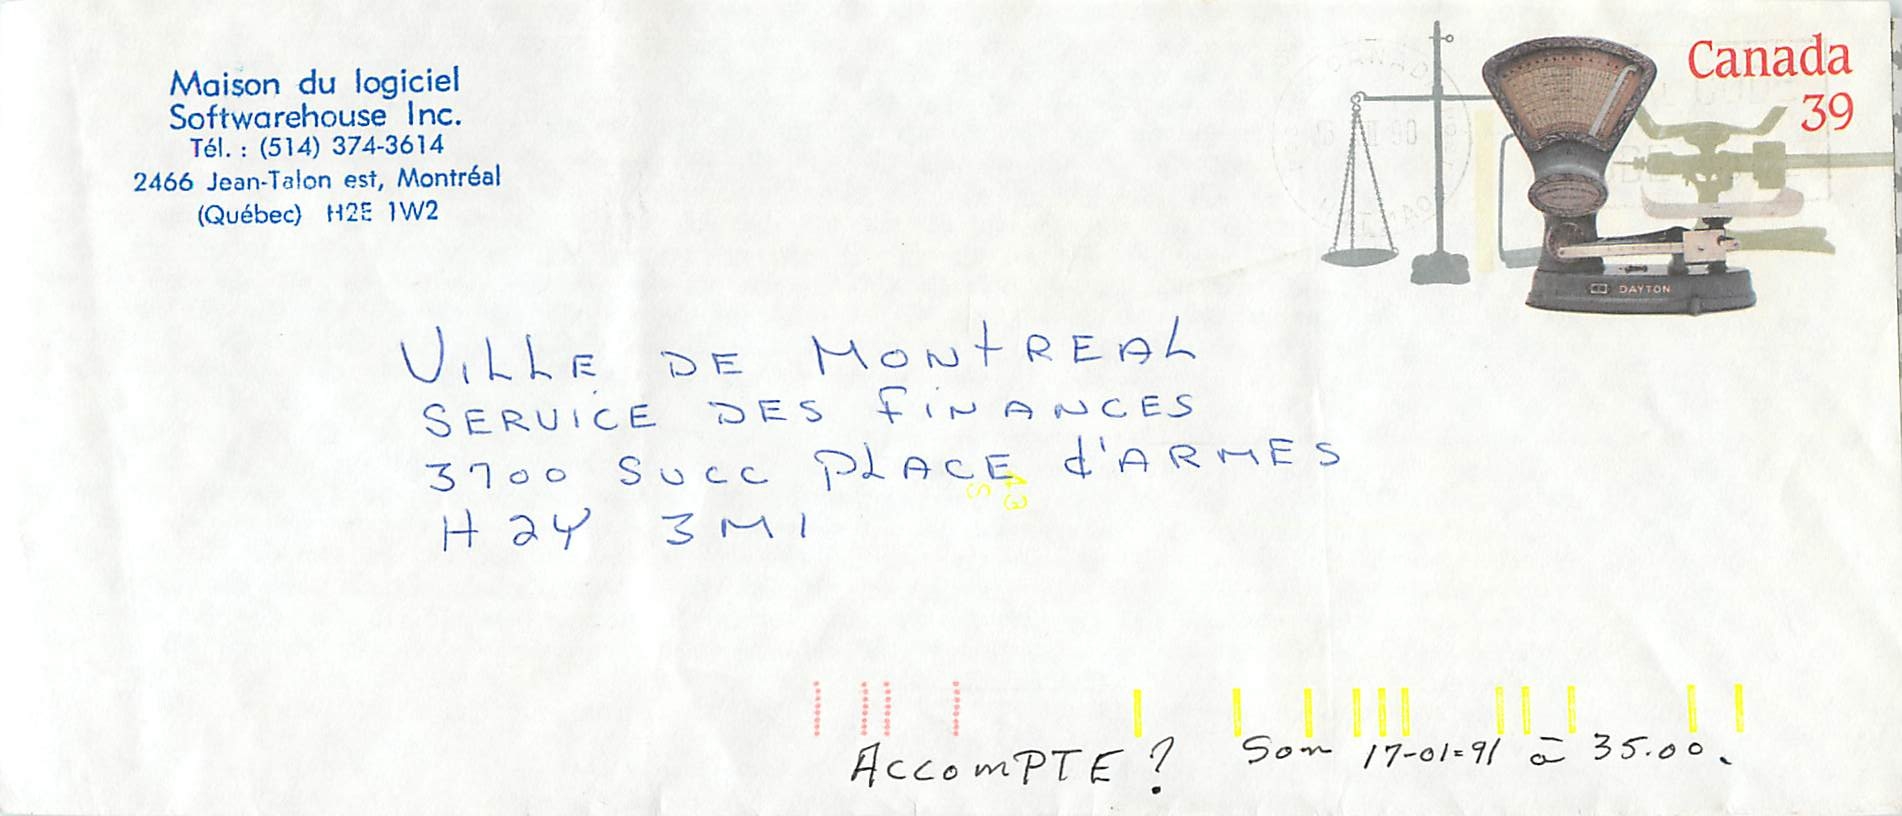 Maison du logiciel
Softwarehouse Inc.
Tél. : (514) 374-3614
2466 Jean-Talon est, Montréal
(Québec) H2E 1W2
Canada
39
DAYTON
VILLE DE MONTREAL
SERVICE DES FINANCES
3700 SUCC PLACE d'ARMES
H2Y 3M1
ACCOMPTE ? Som 17-01-91 à 35.00.